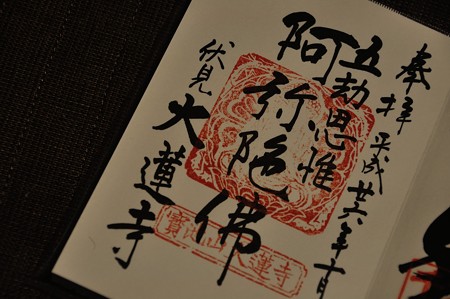 奉拝 平成廿六年
五劫思惟
阿弥陀佛
伏見
大蓮寺
大蓮寺